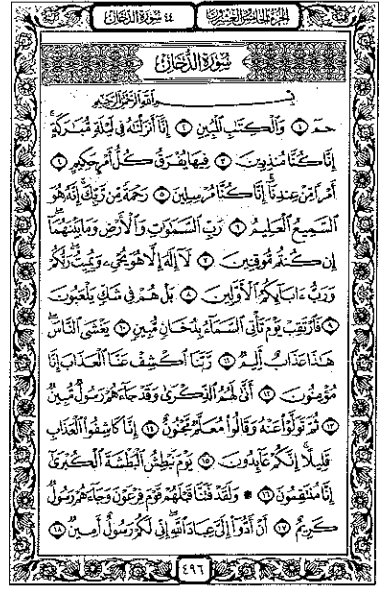 الجزء الخامس والعشرون ٤٤ سورة الدخان
سُورَةُ الدُّخَانِ
بِسْمِ اللَّهِ الرَّحْمَٰنِ الرَّحِيمِ
حمٓ ١ وَالْكِتَابِ الْمُبِينِ ٢ إِنَّا أَنزَلْنَاهُ فِي لَيْلَةٍ مُّبَارَكَةٍ
إِنَّا كُنَّا مُنذِرِينَ ٣ فِيهَا يُفْرَقُ كُلُّ أَمْرٍ حَكِيمٍ ٤
أَمْرًا مِّنْ عِندِنَا إِنَّا كُنَّا مُرْسِلِينَ ٥ رَحْمَةً مِّن رَّبِّكَ إِنَّهُ هُوَ
السَّمِيعُ الْعَلِيمُ ٦ رَبِّ السَّمَاوَاتِ وَالْأَرْضِ وَمَا بَيْنَهُمَا
إِن كُنتُم مُّوقِنِينَ ٧ لَا إِلَٰهَ إِلَّا هُوَ يُحْيِي وَيُمِيتُ رَبُّكُمْ
وَرَبُّ ءَابَائِكُمُ الْأَوَّلِينَ ٨ بَلْ هُمْ فِي شَكٍّ يَلْعَبُونَ
٩ فَارْتَقِبْ يَوْمَ تَأْتِي السَّمَاءُ بِدُخَانٍ مُّبِينٍ ١٠ يَغْشَى النَّاسَ
هَٰذَا عَذَابٌ أَلِيمٌ ١١ رَّبَّنَا اكْشِفْ عَنَّا الْعَذَابَ إِنَّا
مُؤْمِنُونَ ١٢ أَنَّىٰ لَهُمُ الذِّكْرَىٰ وَقَدْ جَاءَهُمْ رَسُولٌ مُّبِينٌ
١٣ ثُمَّ تَوَلَّوْا عَنْهُ وَقَالُوا مُعَلَّمٌ مَّجْنُونٌ ١٤ إِنَّا كَاشِفُوا الْعَذَابِ
قَلِيلًا إِنَّكُمْ عَائِدُونَ ١٥ يَوْمَ نَبْطِشُ الْبَطْشَةَ الْكُبْرَىٰ
إِنَّا مُنتَقِمُونَ ١٦ ۞ وَلَقَدْ فَتَنَّا قَبْلَهُمْ قَوْمَ فِرْعَوْنَ وَجَاءَهُمْ رَسُولٌ
كَرِيمٌ ١٧ أَنْ أَدُّوا إِلَيَّ عِبَادَ اللَّهِ إِنِّي لَكُمْ رَسُولٌ أَمِينٌ ١٨
٤٩٦